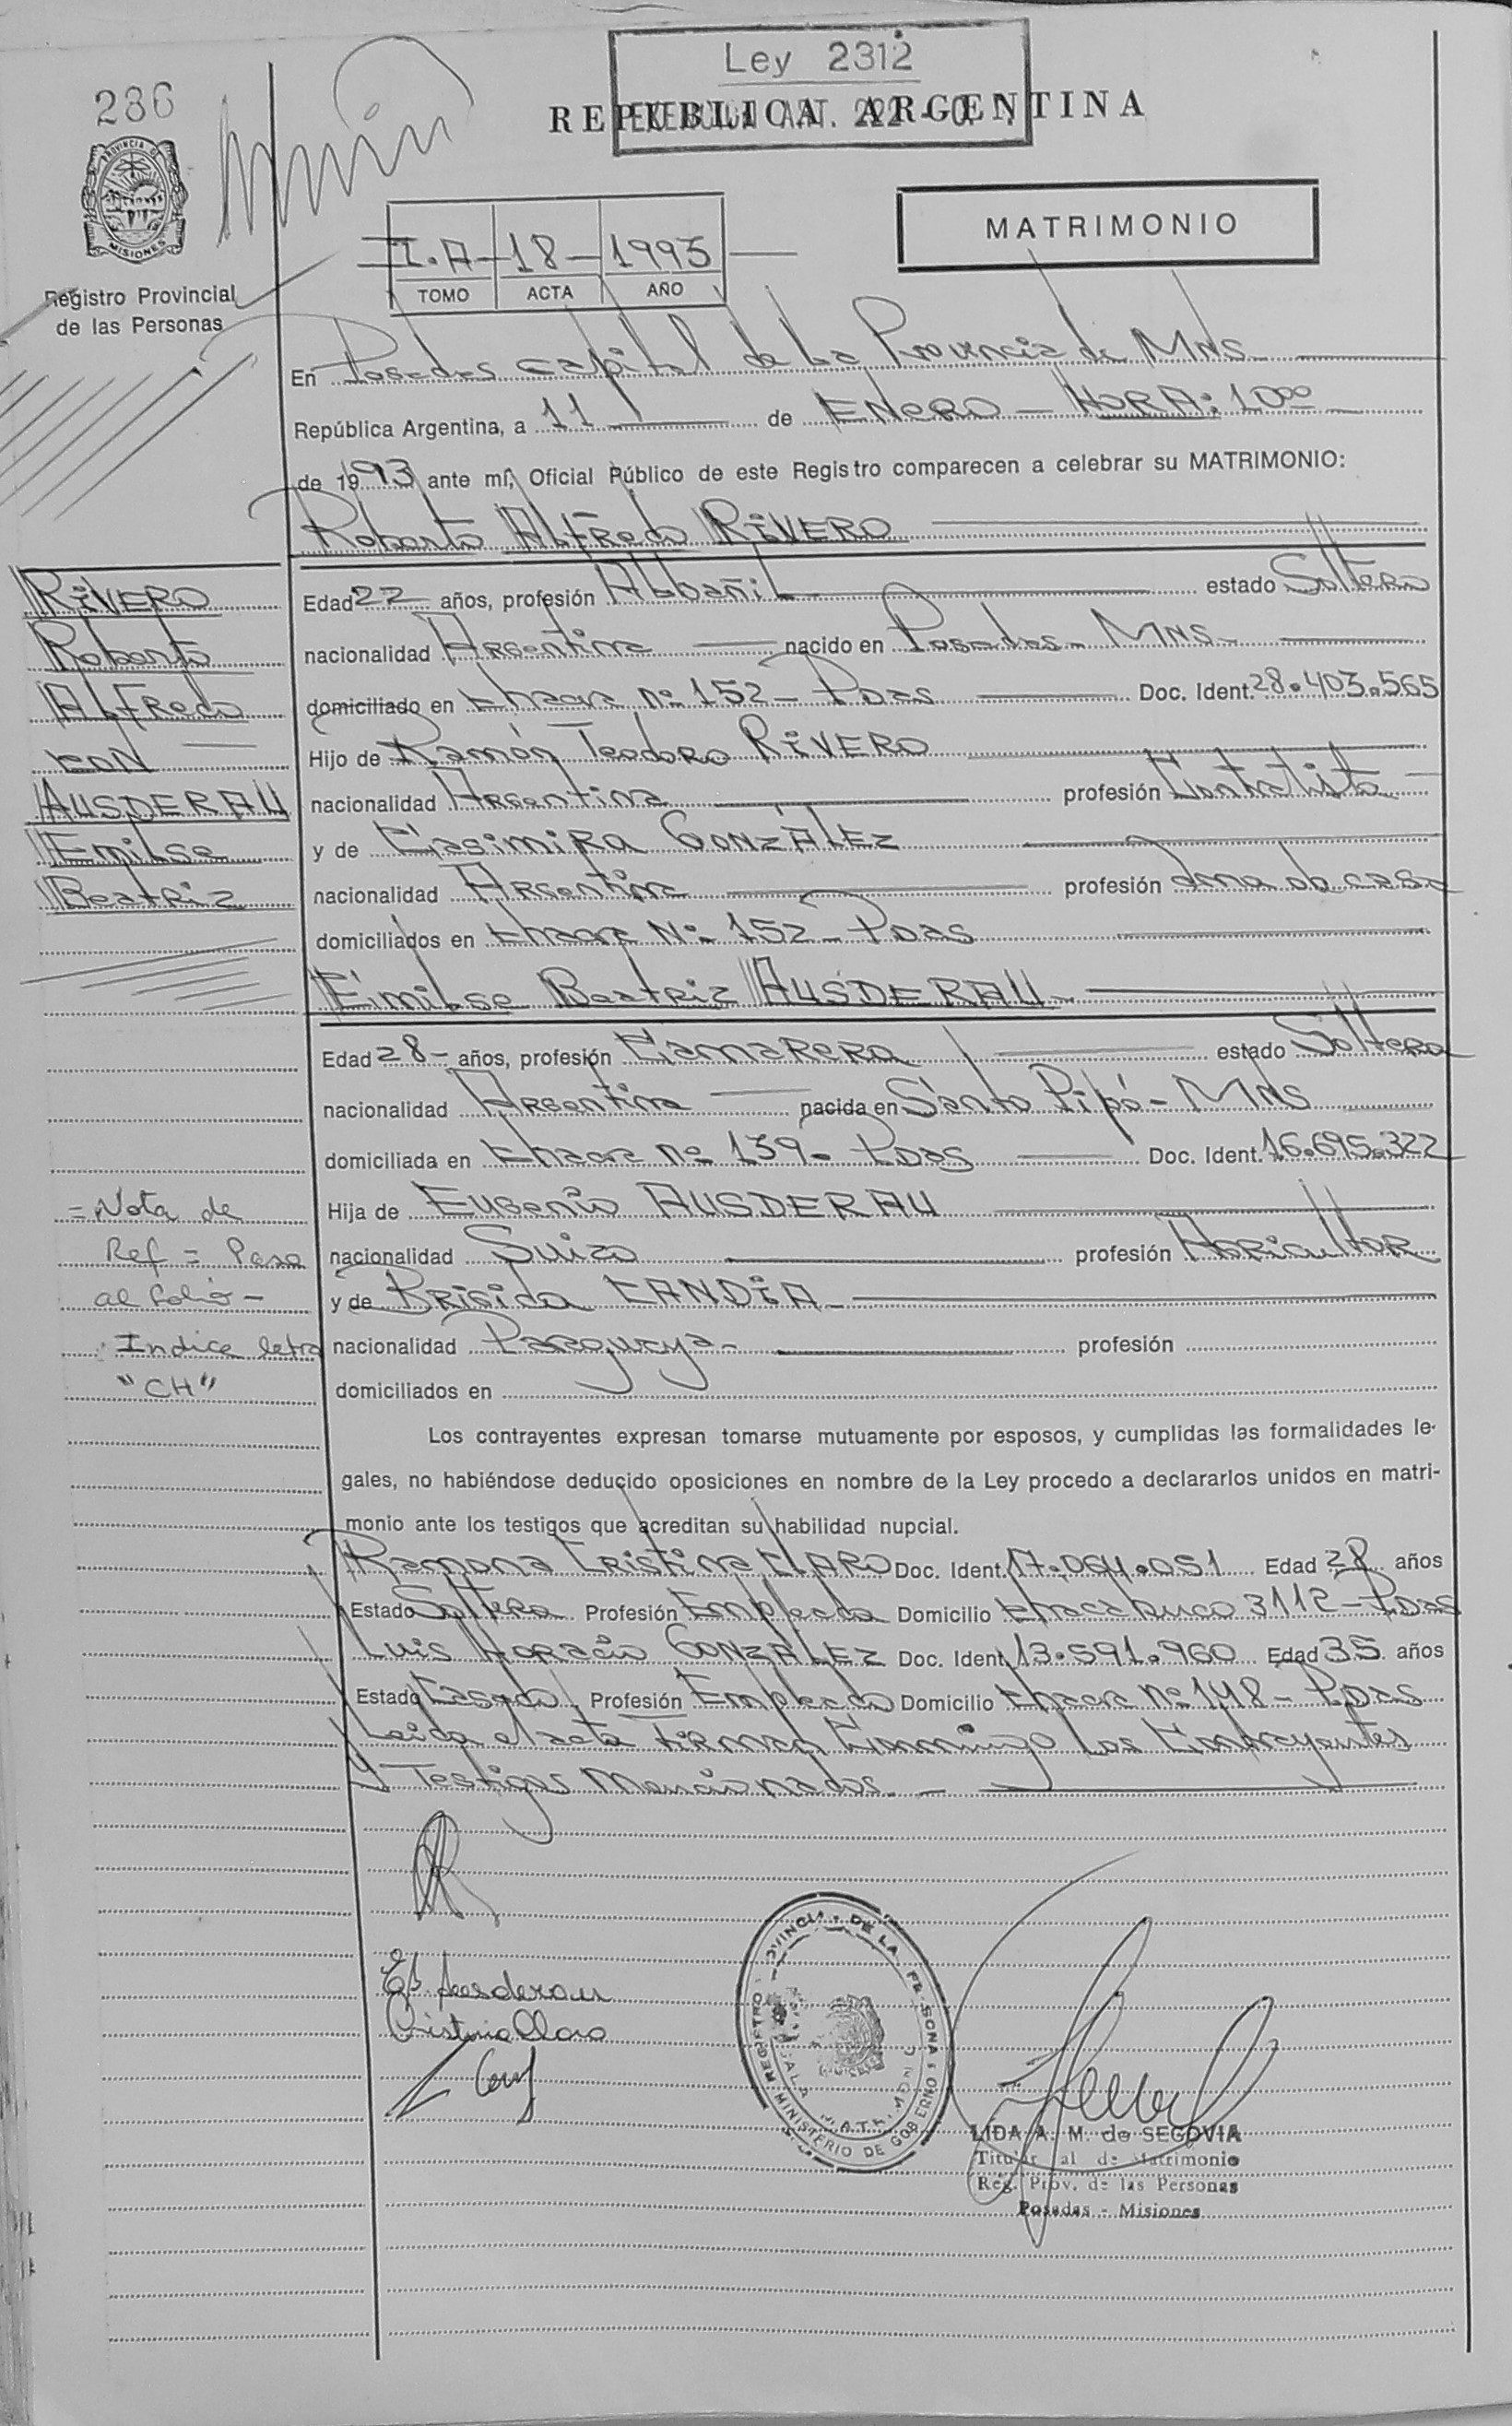 Ley 2312
REPUBLICA ARGENTINA
286
PROVINCIA DE
MISIONES
Registro Provincial
de las Personas
MATRIMONIO
I.A - 18 - 1993
TOMO ACTA AÑO
En Posadas capital de La Provincia de Mns
República Argentina, a 11 de ENERO - HORA: 10°°
de 1993 ante mí, Oficial Público de este Registro comparecen a celebrar su MATRIMONIO:
Roberto Alfredo RIVERO
Edad 22 años, profesión Albañil estado Soltero
nacionalidad Argentina nacido en Posadas - Mns -
domiciliado en Chacra Nº 152 - Pdas Doc. Ident. 28.403.565
Hijo de Ramón Teodoro RIVERO
nacionalidad Argentina profesión Contratista
y de Casimira GONZÁLEZ
nacionalidad Argentina profesión ama de casa
domiciliados en Chacra Nº 152 - Pdas
Emilse Beatriz AUSDERAU -
Edad 28 - años, profesión Camarera estado Soltera
nacionalidad Argentina nacida en Santo Pipó - Mns
domiciliada en Chacra Nº 139 - Pdas Doc. Ident. 16.695.322
Hija de Eugenio AUSDERAU
nacionalidad Suizo profesión Agricultor
y de Brigida CANDIA -
nacionalidad Paraguaya - profesión
domiciliados en
Los contrayentes expresan tomarse mutuamente por esposos, y cumplidas las formalidades le-
gales, no habiéndose deducido oposiciones en nombre de la Ley procedo a declararlos unidos en matri-
monio ante los testigos que acreditan su habilidad nupcial.
Ramona Cristina CLARO Doc. Ident. 17.064.051 Edad 28 años
Estado Soltera Profesión Empleada Domicilio Chacabuco 3112 - Pdas
Luis Horacio GONZALEZ Doc. Ident. 13.591.960 Edad 35 años
Estado Casado Profesión Empleado Domicilio Chacra Nº 148 - Pdas
Leida el acta firman conmigo los contrayentes
y Testigos mencionados. -
RIVERO
Roberto
Alfredo
con
AUSDERAU
Emilse
Beatriz
= Nota de
Ref = Pase
al folio -
Indice letra
"CH"
EB Ausderau
Cristina Claro
MINISTERIO DE GOBIERNO
LIDA A. M. de SEGOVIA
Matrimonio
Reg. Prov. de las Personas
Posadas - Misiones